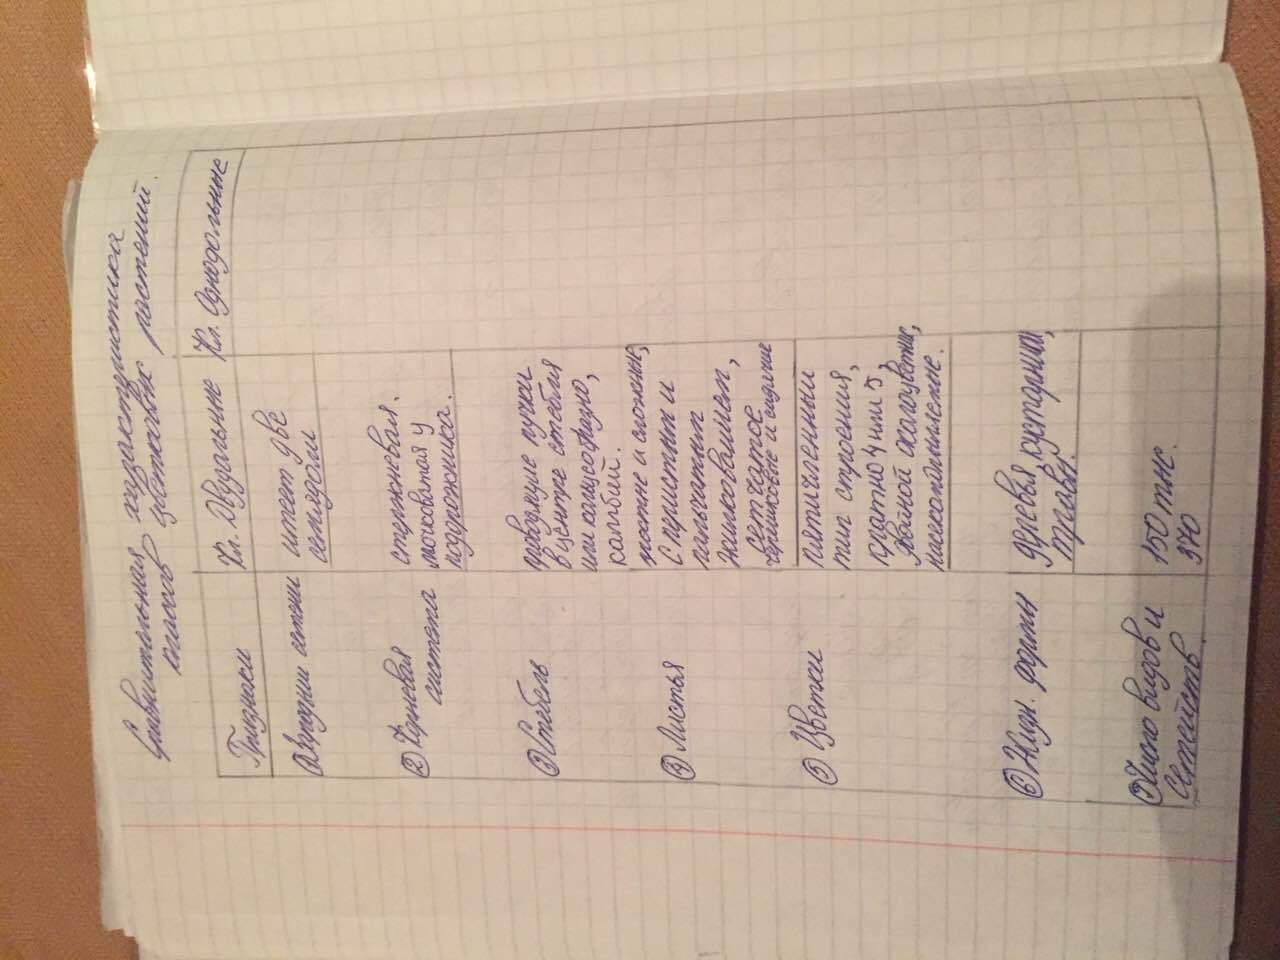 Сравнительная характеристика
классов цветковых растений.
Признаки
Кл. Двудольные
Кл. Однодольные
① строении семени
имеет две
семядоли
② Корневая
система
стержневая.
мочковатая у
подорожника.
③ Стебель
проводящие пучки
в центре стебля
или кольцеобразно,
камбий.
④ Листья
простые и сложные,
с перистым и
пальчатым
жилкованием,
сетчатое
черешковые и сидячие
⑤ Цветки
пятичленный
тип строения,
кратно 4 или 5,
двойной околоцветник,
насекомоопыляемые.
⑥ Жизн. формы
деревья, кустарники,
травы.
⑦ Число видов и
семейств.
150 тыс.
370